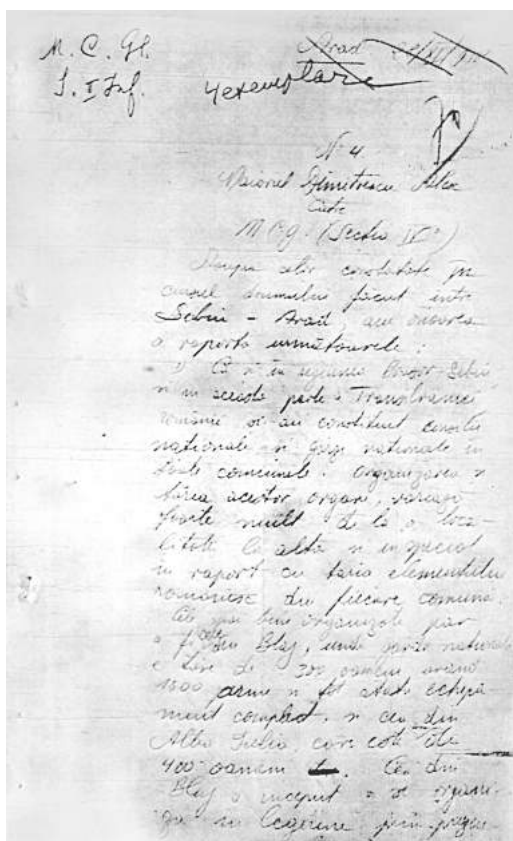 M. C. Gl.
S. I Inf.
Arad
4 exemplare
No 4
Maiorul Dimitrescu
Către
M.C.G. (Secția
Asupra celor constatate în
cursul drumului făcut între
Sebiu - Arad, am onoarea
a raporta următoarele:
1) Că și în regiunea Brașov-Sebiu
și în această parte a Transilvaniei
române s-au constituit consilii
naționale și gărzi naționale în
toate comunele; organizarea și
tăria acestor organe, variază
foarte mult de la o loca-
litate la alta și în special
în raport cu tăria elementului
românesc din fiecare comună.
Cele mai bine organizate par
a fi cele din Blaj, unde garda națională
e tare de 300 oameni având
1600 arme și tot atâta echipa-
ment complect, și cea din
Alba Iulia, care este de
400 oameni. Cea din
Blaj a început a se organi-
za în legiune prin